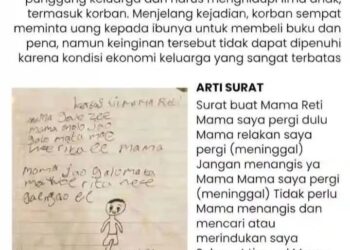 keluarga dan harus menghidupi lima anak,
termasuk korban. Menjelang kejadian, korban sempat
meminta uang kepada ibunya untuk membeli buku dan
pena, namun keinginan tersebut tidak dapat dipenuhi
karena kondisi ekonomi keluarga yang sangat terbatas
Mama Reti
mama
mama molo
galo mata mae
rita ee mama
mama galo mata
mae rita
ee
ARTI SURAT
Surat buat Mama Reti
Mama saya pergi dulu
Mama relakan saya
pergi (meninggal)
Jangan menangis ya
Mama Mama saya pergi
(meninggal) Tidak perlu
Mama menangis dan
mencari atau
merindukan saya